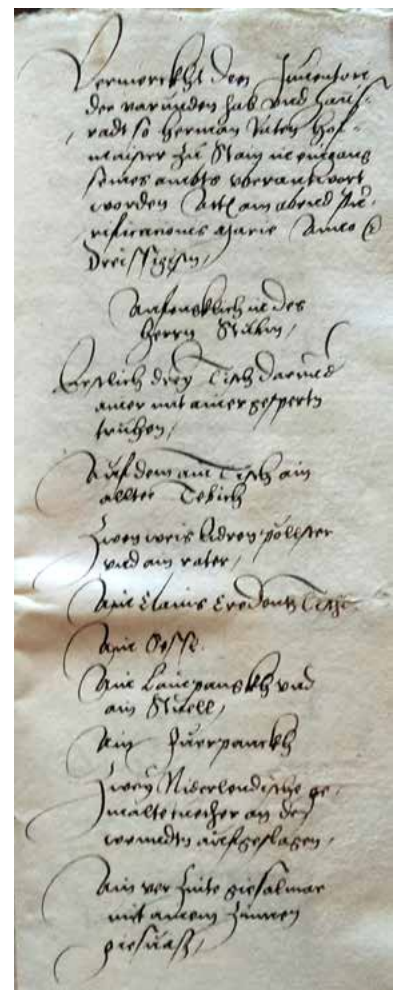 Vermerckht den Inuentori
der varunden hab vnd hauß-
radt so Herman Vaten Hof-
maister zu Stain in eingang
seines ambts vberantwort
worden Actum am abend Pu-
rificationis Marie Anno
Dreissigisten,
Anfencklich in des
Herrn Stubm,
Erstlich drey Tisch darund
ainer mit ainer gespertn
truhen,
Auf dem ain Tisch ain
allter Tebich
Zwen weis lidren pöllster
vnd ain roter,
Ain Clains Credentz Tischl
Ain
Ain Lainpanckh vnd
ain Stuell,
Ain Fuerpanckh
Zwey Niderlendische ge-
malte tuecher an den
wenndten aufgeslagen,
Ain ver Zinte giesalmar
mit ainem Zinnen
giesuas,